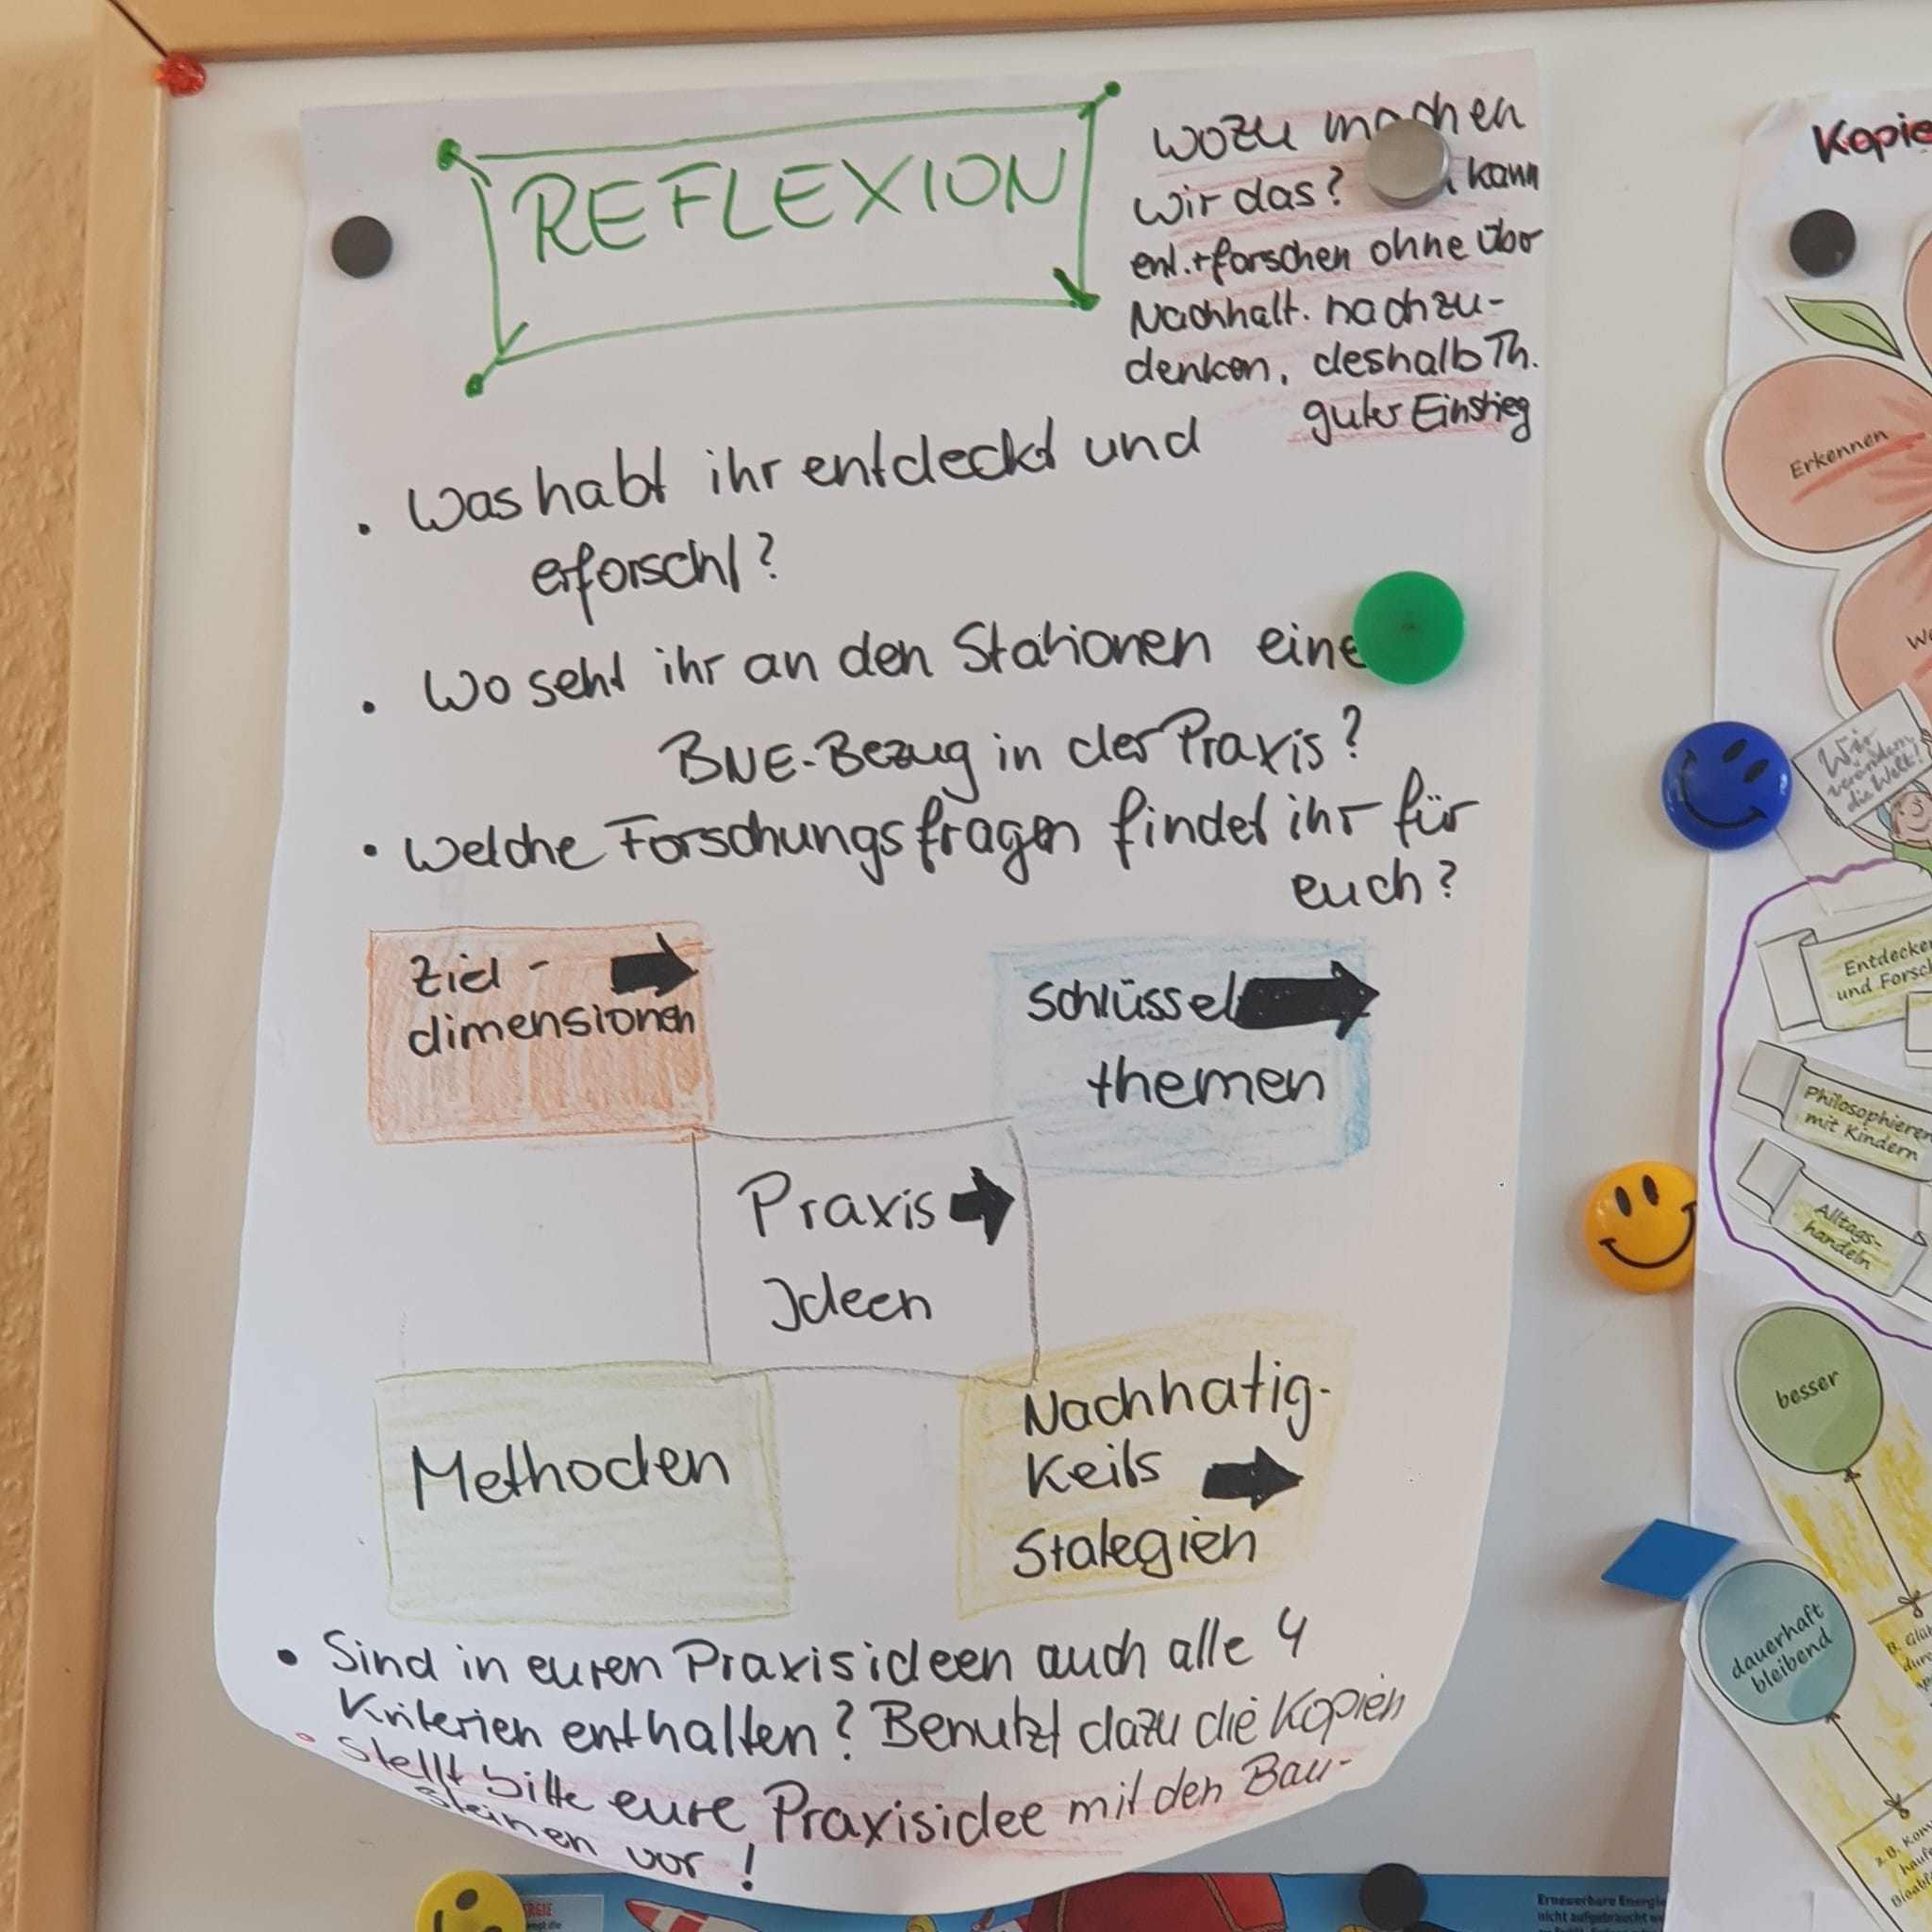 REFLEXION
wozu machen
wir das? kann
ent.+forschen ohne über
Nachhalt. nachzu-
denken, deshalb Th.
guter Einstieg
. Was habt ihr entdeckt und
erforscht?
. Wo seht ihr an den Stationen eine
BNE-Bezug in der Praxis?
• Welche Forschungsfragen findet ihr für
euch?
Ziel-
dimensionen
Schlüssel
themen
Praxis
Ideen
Methoden
Nachhatig-
keits
Stategien
• Sind in euren Praxisideen auch alle 4
Kriterien enthalten? Benutzt dazu die Kopien
• stellt bitte eure Praxisidee mit den Bau-
steinen vor!
Kopie
Erkennen
Wir
verändern
die Welt!
Entdecke
und Forsc
Philosophieren
mit Kindern
Alltags-
handeln
besser
dauerhaft
bleibend
Erneuerbare Energie
nicht aufgebraucht we